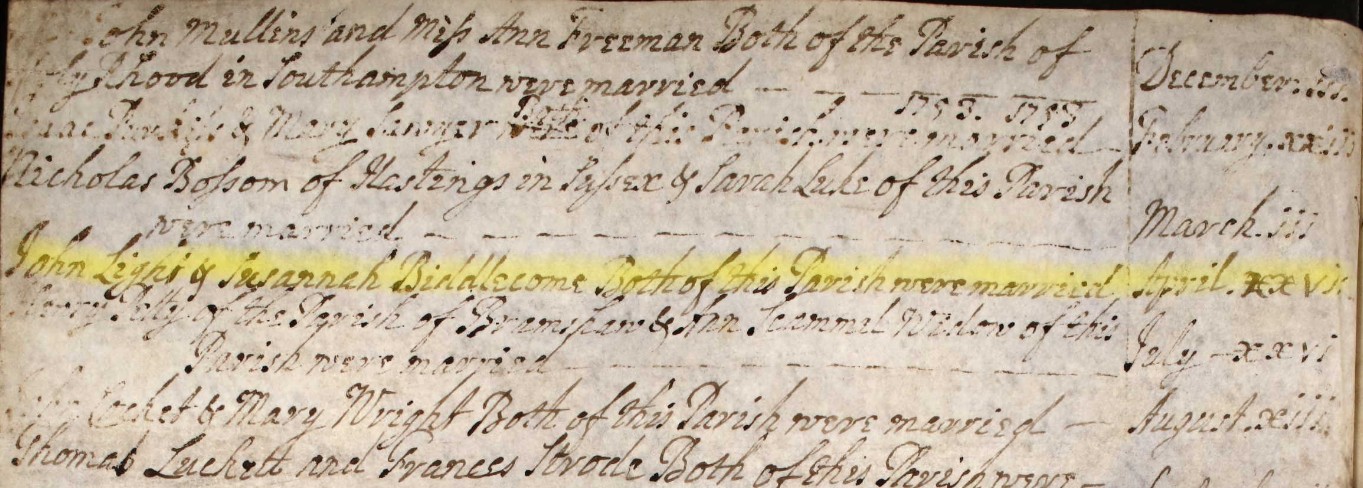 John Mullins and Miss Ann Freeman Both of the Parish of
Rhood in Southampton were married — — — December: iii.
1753. 1753
& Mary Sawyer Both of this Parish were married February. xxiii
Nicholas Bossom of Hastings in Sussex & Sarah Luke of this Parish
were married — — — — — — — — — — March. iii
John Light & Susannah Biddlecome Both of this Parish were married April. xxvi
of the Parish of Bramshaw & Ann Scammal Widow of this
Parish were married — — — — — — — — — July — xxvi
& Mary Wright Both of this Parish were married — August. xiii
Thomas Luckett and Frances Strode Both of this Parish were —